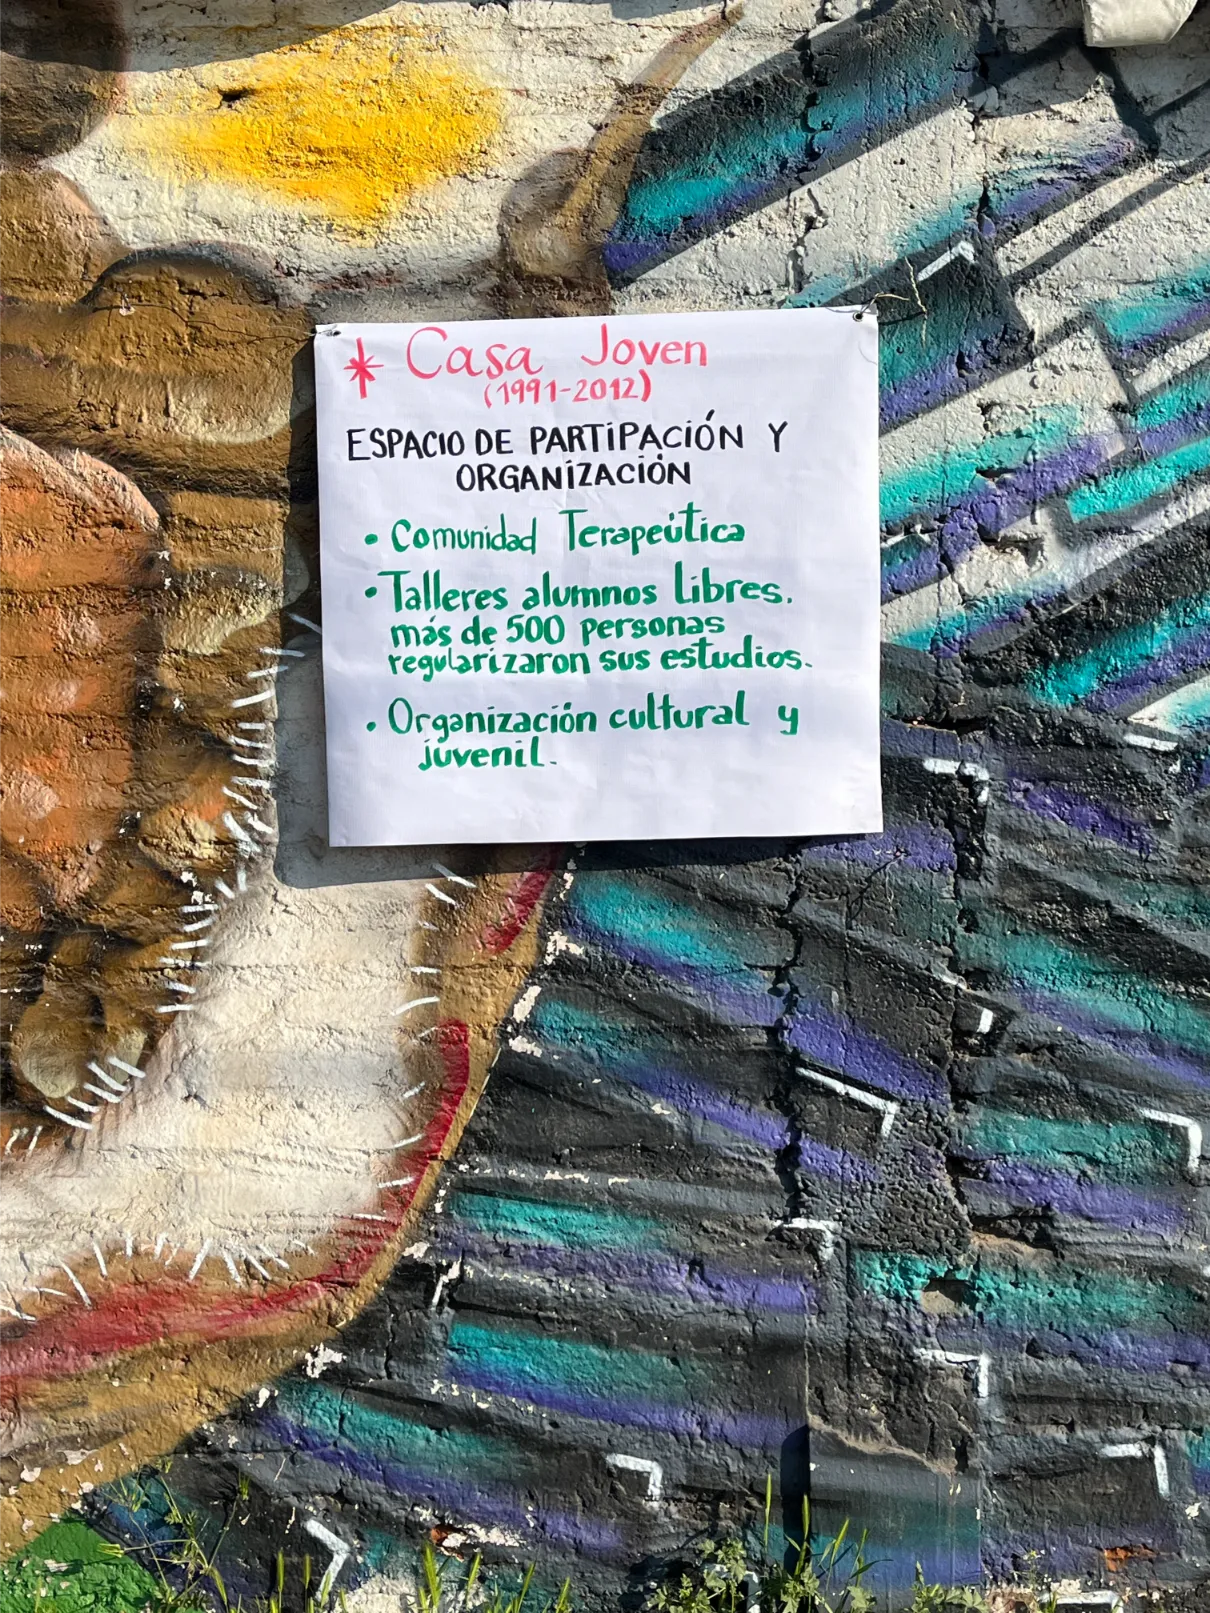 * Casa Joven
(1991-2012)
ESPACIO DE PARTIPACIÓN Y
ORGANIZACIÓN
• Comunidad Terapeútica
• Talleres alumnos Libres.
más de 500 personas
regularizaron sus estudios.
• Organización cultural y
juvenil.